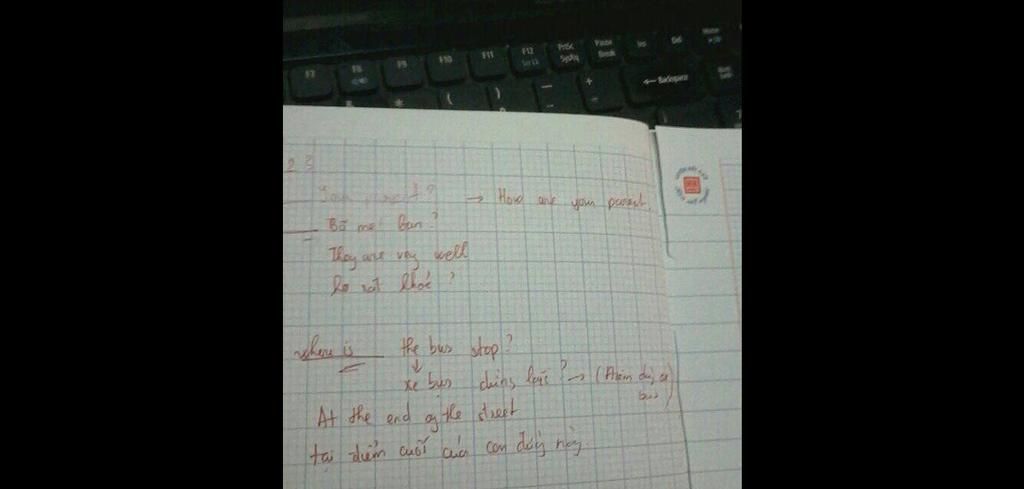 F7 F8 F9 F10 F11 F12 PrtSc SysRq Pause Break Ins Del Home
← Backspace
2 3
→ How are your parent.
Bố mẹ bạn?
They are very well
họ rất khoẻ?
where is the bus stop?
↓
xe bus dừng lại? → (Điểm bus)
At the end of the street
tại điểm cuối của con đường này.